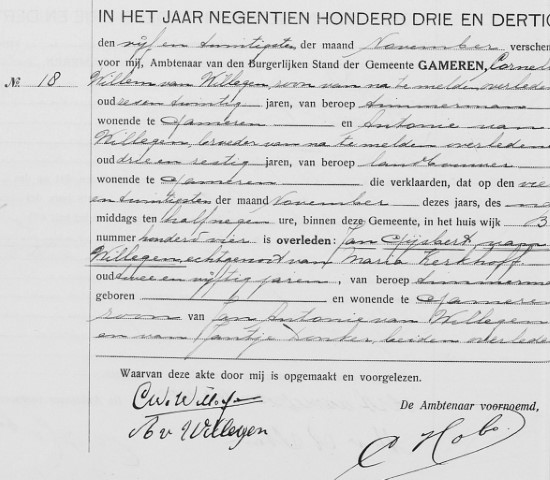 IN HET JAAR NEGENTIEN HONDERD DRIE EN DERTIG
den vijf en twintigsten der maand November versche
voor mij, Ambtenaar van den Burgerlijken Stand der Gemeente GAMEREN, Cornel
No. 18 Willem van Willegen, zoon van na te melden overlede
oud een en twintig jaren, van beroep timmerman
wonende te Gameren en Antonie van
Willegen, broeder van na te melden overledene
oud drie en zestig jaren, van beroep landbouwer
wonende te Gameren die verklaarden, dat op den vie
en twintigsten der maand November dezes jaars, des na
middags ten half negen ure, binnen deze Gemeente, in het huis wijk B
nummer honderd vier is overleden: Jan Gijsbert van
Willegen, echtgenoot van Maria Kerkhoff
oud twee en vijftig jaren, van beroep timmerma
geboren en wonende te Gameren
zoon van Jan Antonie van Willegen
en van Jantje Donker, beiden overlede
Waarvan deze akte door mij is opgemaakt en voorgelezen.
C.W. v. Willegen
De Ambtenaar voornoemd,
A v Willegen
C Hobo